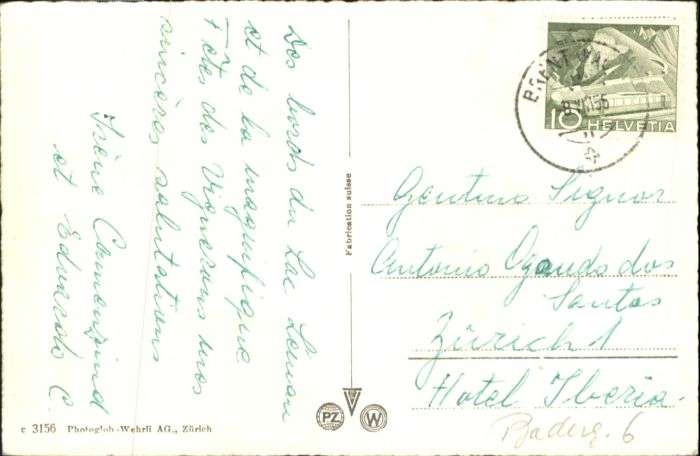 Des bords du Lac Léman
et de la magnifique
Fêtes des Vignerons nos
sincères salutations
Irène Camenzind
et Eduardo C.
Fabrication suisse
10 HELVETIA
BRENT
Gentmo Signor
Antonio Ogando dos
Santos
Zürich 1
Hotel Iberia
Baderg. 6
PZ
W
c 3156 Photoglob-Wehrli AG., Zürich